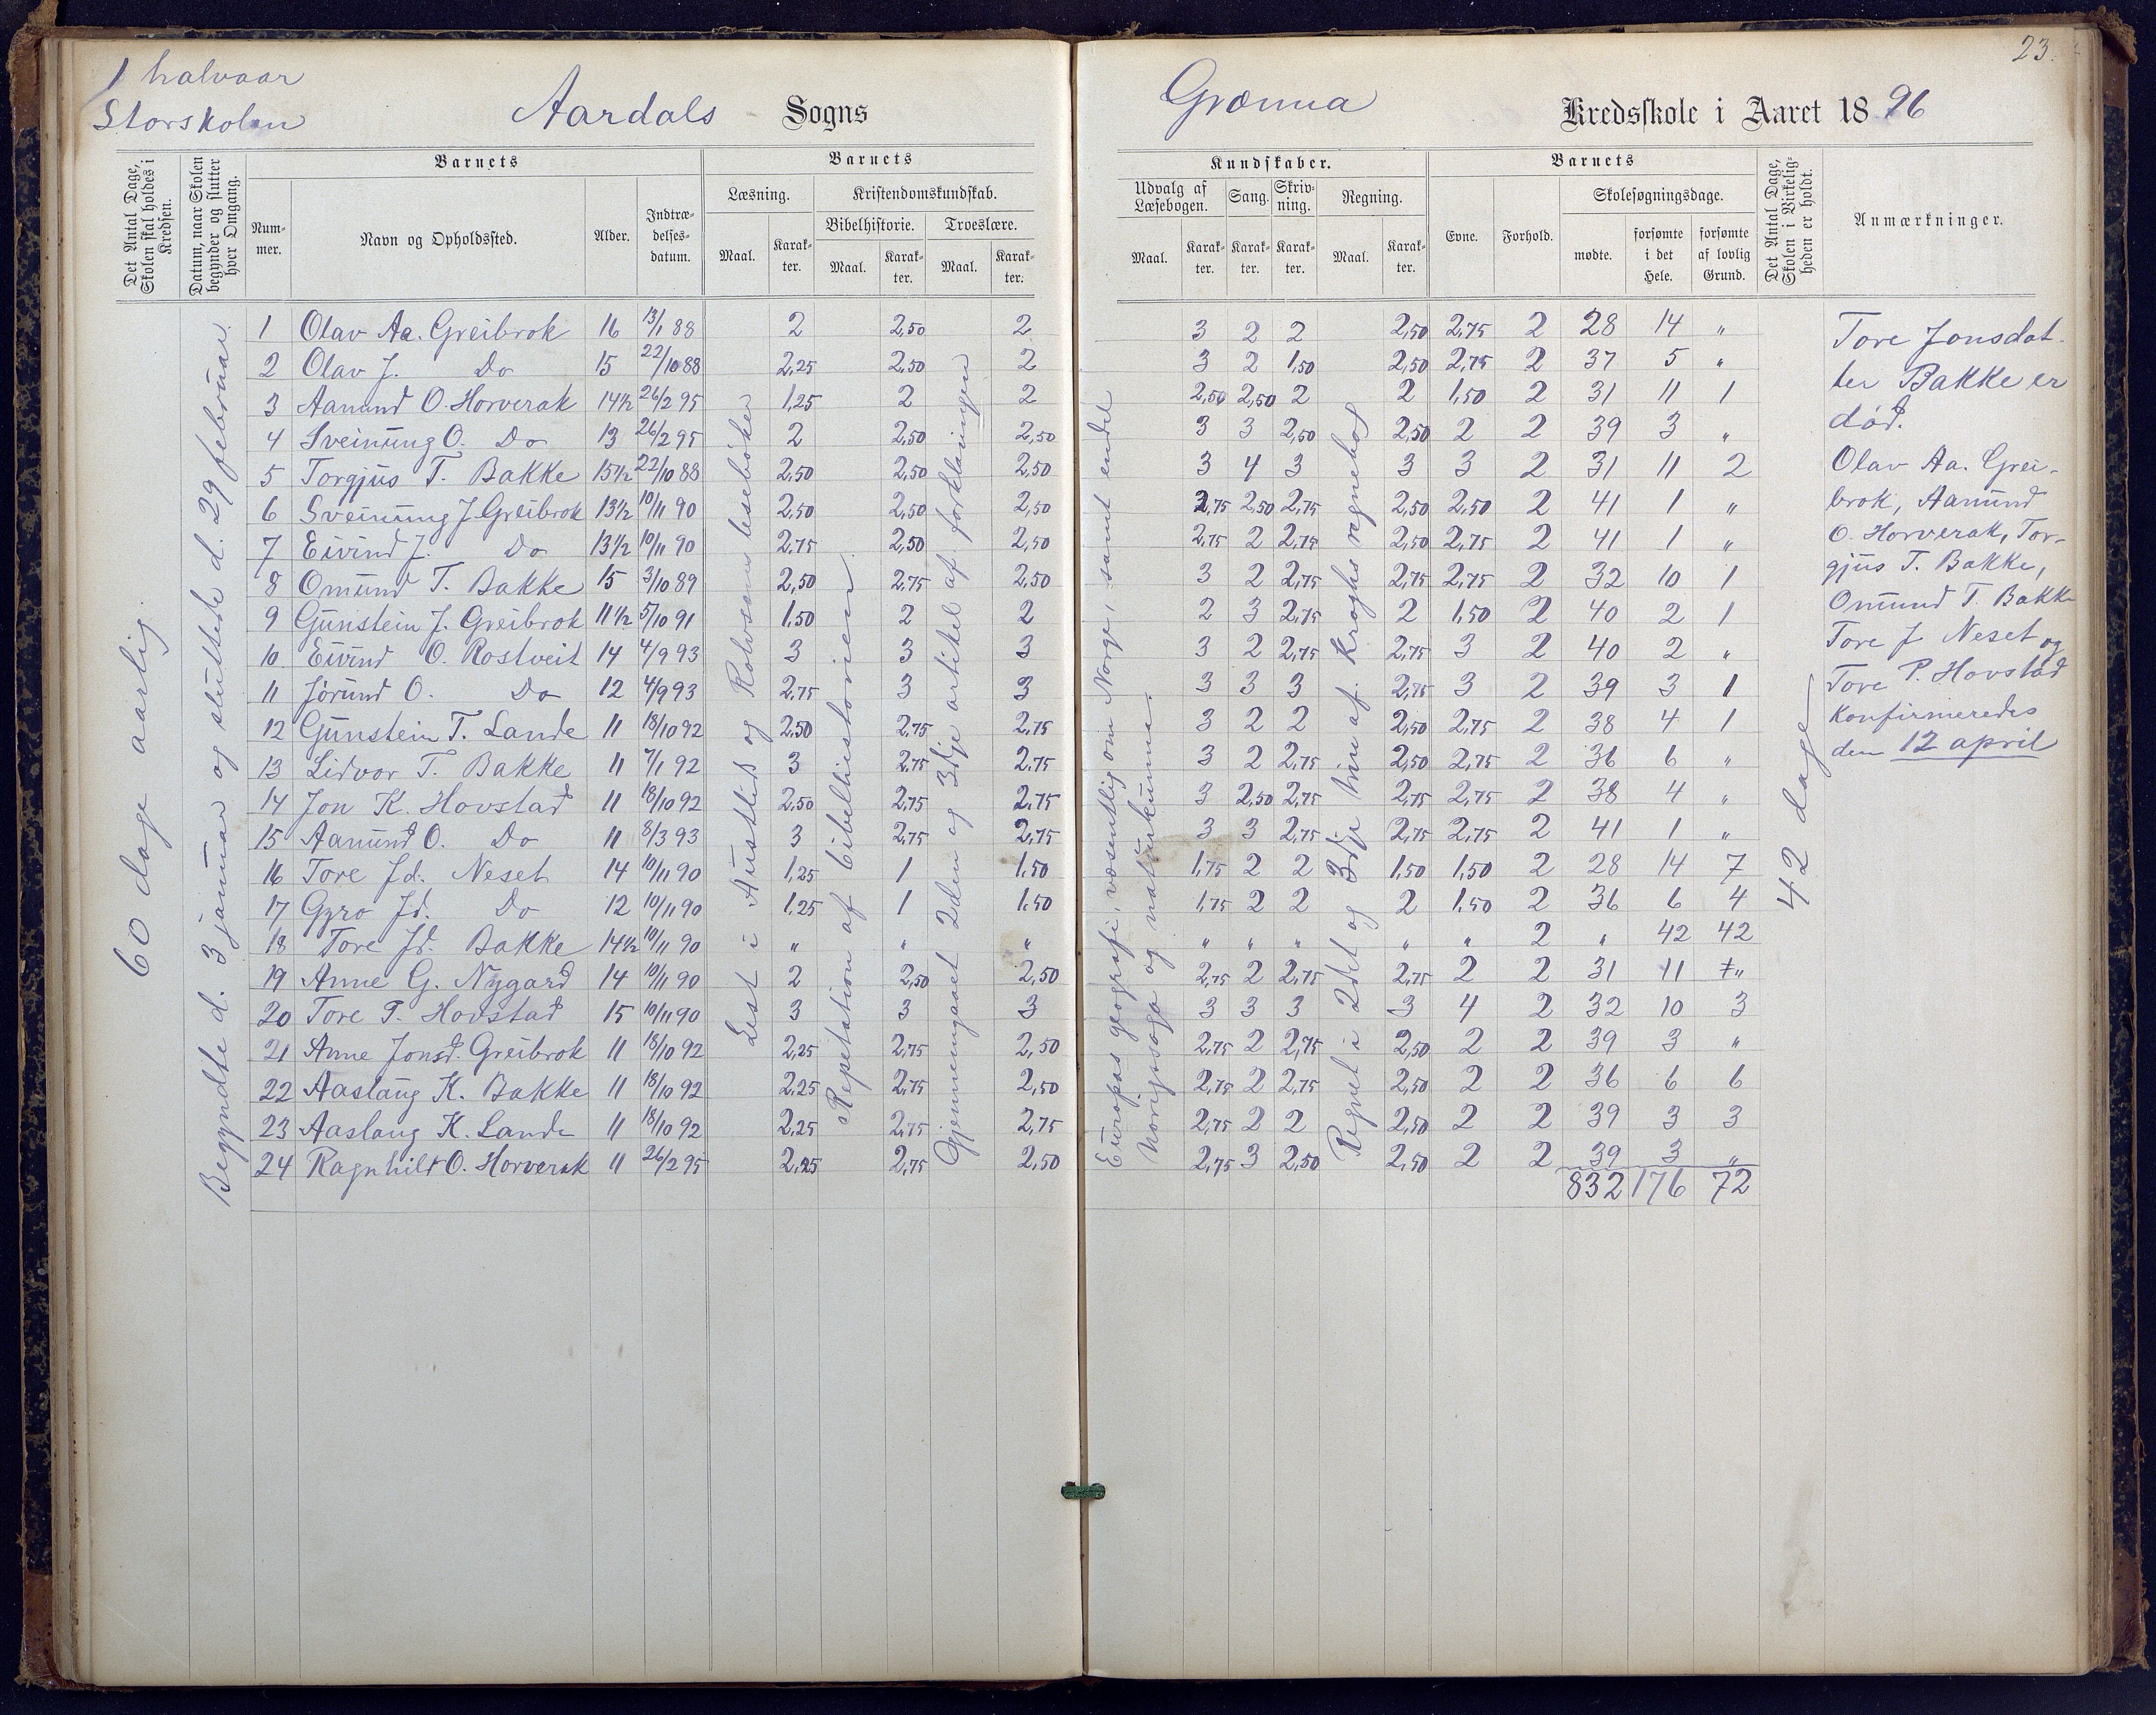 1 halvaar
Storskolen
Aardals Sogns
Grønna
Kredsskole i Aaret 1896
23.
Det Antal Dage, Skolen skal holdes i Kredsen.
Datum, naar Skolen begynder og slutter hver Omgang.
Barnets
Nummer.
Navn og Opholdssted.
Alder.
Indtrædelsesdatum.
Barnets
Læsning.
Maal.
Karakter.
Kristendomskundskab.
Bibelhistorie.
Maal.
Karakter.
Troeslære.
Maal.
Karakter.
Kundskaber.
Udvalg af Læsebogen.
Maal.
Karakter.
Sang.
Karakter.
Skrivning.
Karakter.
Regning.
Maal.
Karakter.
Barnets
Evne.
Forhold.
Skolesøgningsdage.
mødte.
forsømte i det Hele.
forsømte af lovlig Grund.
Det Antal Dage, Skolen i Virkeligheden er holdt.
Anmærkninger.
60 dage aarlig.
Begyndte d. 3 januar og sluttede d. 29 februar.
Lest i Austlids og Rolvsens lesebøker
Repetation af bibelhistorien.
Gjennemgaaet 2den og 3dje artikel af forklaringen
Europas geografi, væsentlig om Norge, samt endel
Norigssoga og naturkunna.
Regnet i 2det og 3dje trin af Kroghs regnebog
42 dage
1 Olav Aa. Greibrok 16 13/1 88 2 2,50 2 3 2 2 2,50 2,75 2 28 14 "
2 Olav J. Do 15 22/10 88 2,25 2,50 2 3 2 1,50 2,50 2,75 2 37 5 "
3 Aanund O. Horverak 14½ 26/2 95 1,25 2 2 2,50 2,50 2 2 1,50 2 31 11 1
4 Sveinung O. Do 13 26/2 95 2 2,50 2,50 3 3 2,50 2,50 2 2 39 3 "
5 Torgjus T. Bakke 15½ 22/10 88 2,50 2,50 2,50 3 4 3 3 3 2 31 11 2
6 Sveinung J. Greibrok 13½ 10/11 90 2,50 2,50 2,50 2,75 2,50 2,75 2,50 2,50 2 41 1 "
7 Eivind J. Do 13½ 10/11 90 2,75 2,50 2,50 2,75 2 2,75 2,50 2,75 2 41 1 "
8 Omund T. Bakke 15 3/10 89 2,50 2,75 2,50 3 2 2,75 2,75 2,75 2 32 10 1
9 Gunstein J. Greibrok 11½ 5/10 91 1,50 2 2 2 3 2,75 2 1,50 2 40 2 1
10 Eivind O. Rostveit 14 4/9 93 3 3 3 3 2 2,75 2,75 3 2 40 2 "
11 Jørund O. Do 12 4/9 93 2,75 3 3 3 3 3 2,75 3 2 39 3 1
12 Gunstein T. Lande 11 18/10 92 2,50 2,75 2,75 3 2 2 2,50 2,75 2 38 4 1
13 Lidvor T. Bakke 11 7/1 92 3 2,75 2,75 3 2 2,75 2,50 2,75 2 36 6 "
14 Jon K. Hovstad 11 18/10 92 2,50 2,75 2,75 3 2,50 2,75 2,75 2,75 2 38 4 "
15 Aanund O. Do 11 8/3 93 3 2,75 2,75 3 3 2,75 2,75 2,75 2 41 1 "
16 Tore Jd. Neset 14 10/11 90 1,25 1 1,50 1,75 2 2 1,50 1,50 2 28 14 7
17 Gyro Jd. Do 12 10/11 90 1,25 1 1,50 1,75 2 2 2 1,50 2 36 6 4
18 Tore Jd. Bakke 14½ 10/11 90 " " " " " " " " 2 " 42 42
19 Anne G. Nygard 14 10/11 90 2 2,50 2,50 2,75 2 2,75 2,75 2 2 31 11 "
20 Tore P. Hovstad 15 10/11 90 3 3 3 3 3 3 3 4 2 32 10 3
21 Anne Jonsd. Greibrok 11 18/10 92 2,25 2,75 2,50 2,75 2 2,75 2,50 2 2 39 3 "
22 Aaslaug K. Bakke 11 18/10 92 2,25 2,75 2,50 2,75 2 2,75 2,50 2 2 36 6 6
23 Aaslaug K. Lande 11 18/10 92 2,25 2,75 2,75 2,75 2 2 2,50 2 2 39 3 3
24 Ragnhild O. Horverak 11 26/2 95 2,25 2,75 2,50 2,75 3 2,50 2,50 2 2 39 3 "
832 176 72
Tore Jonsdat-
ter Bakke er
død.
Olav Aa. Grei-
brok, Aanund
O. Horverak, Tor-
gjus T. Bakke,
Omund T. Bakke
Tore J Neset og
Tore P. Hovstad
konfirmeredes
den 12 april